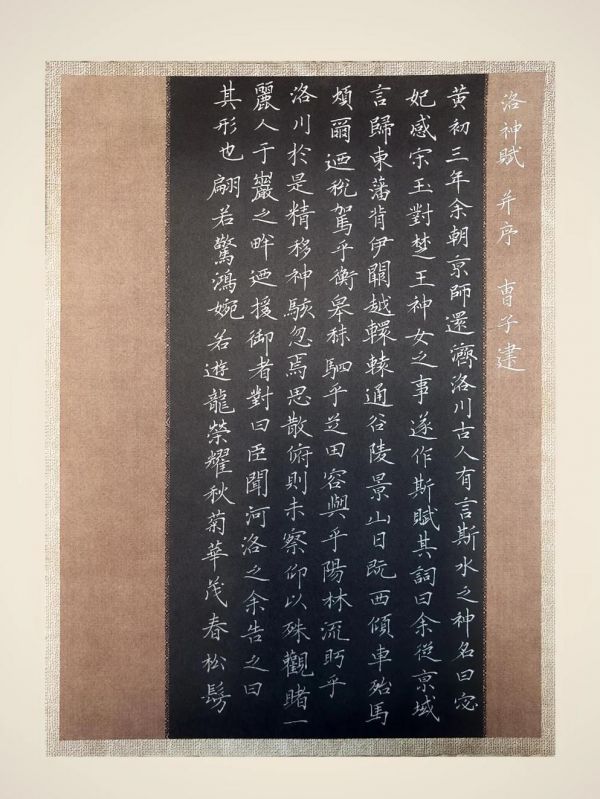 洛神賦 并序 曹子建
黃初三年余朝京師還濟洛川古人有言斯水之神名曰宓
妃感宋玉對楚王神女之事遂作斯賦其詞曰余從京域
言歸東藩背伊闕越轘轅通谷陵景山日既西傾車殆馬
煩爾迺稅駕乎衡皋秣駟乎芝田容與乎陽林流眄乎
洛川於是精移神駭忽焉思散俯則未察仰以殊觀睹一
麗人于巖之畔迺援御者對曰臣聞河洛之余告之曰
其形也翩若驚鴻婉若遊龍榮耀秋菊華茂春松髣